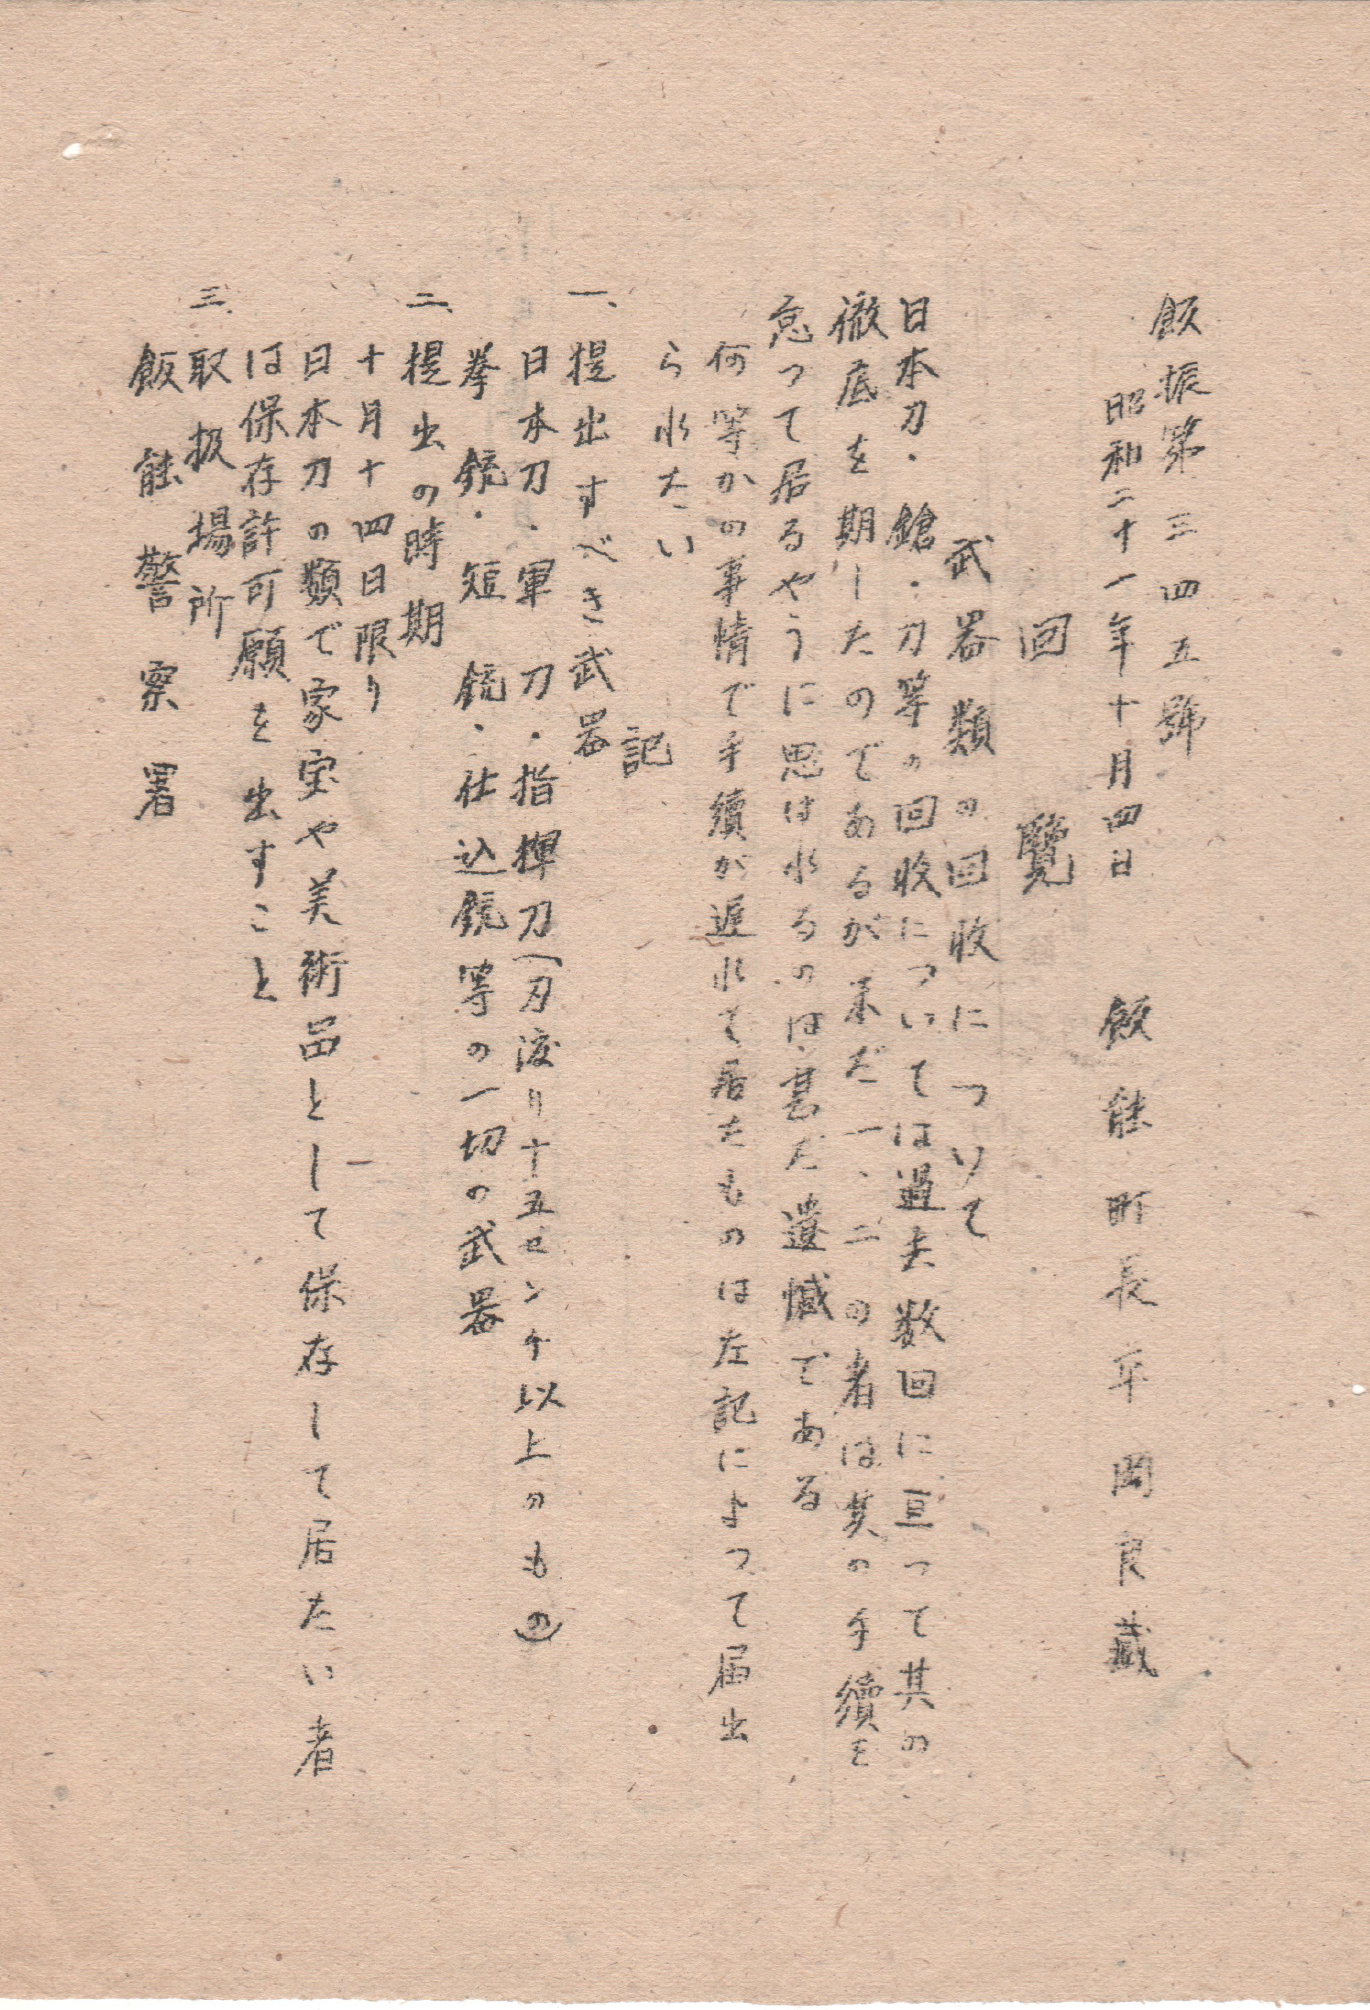 飯振第三四五號
昭和二十一年十月四日　飯能町長平岡良蔵
回覽
武器類の回收について
日本刀・鎗・刀等の回收については過去数回に亘って其の
徹底を期したのであるが未だ一、二の者は其の手續を
怠つて居るやうに思は水るのは甚だ遺憾である
何等かの事情で手續が遅水て居たものは左記によつて届出
ら水たい
記
一、提出すべき武器
日本刀・軍刀・指揮刀(刃渡り十五センチ以上のもの)
拳銃・短銃・仕込銃等の一切の武器
二、提出の時期
十月十四日限り
日本刀の類で家宝や美術品として保存して居たい者
は保存許可願を出すこと
三、取扱場所
飯能警察署